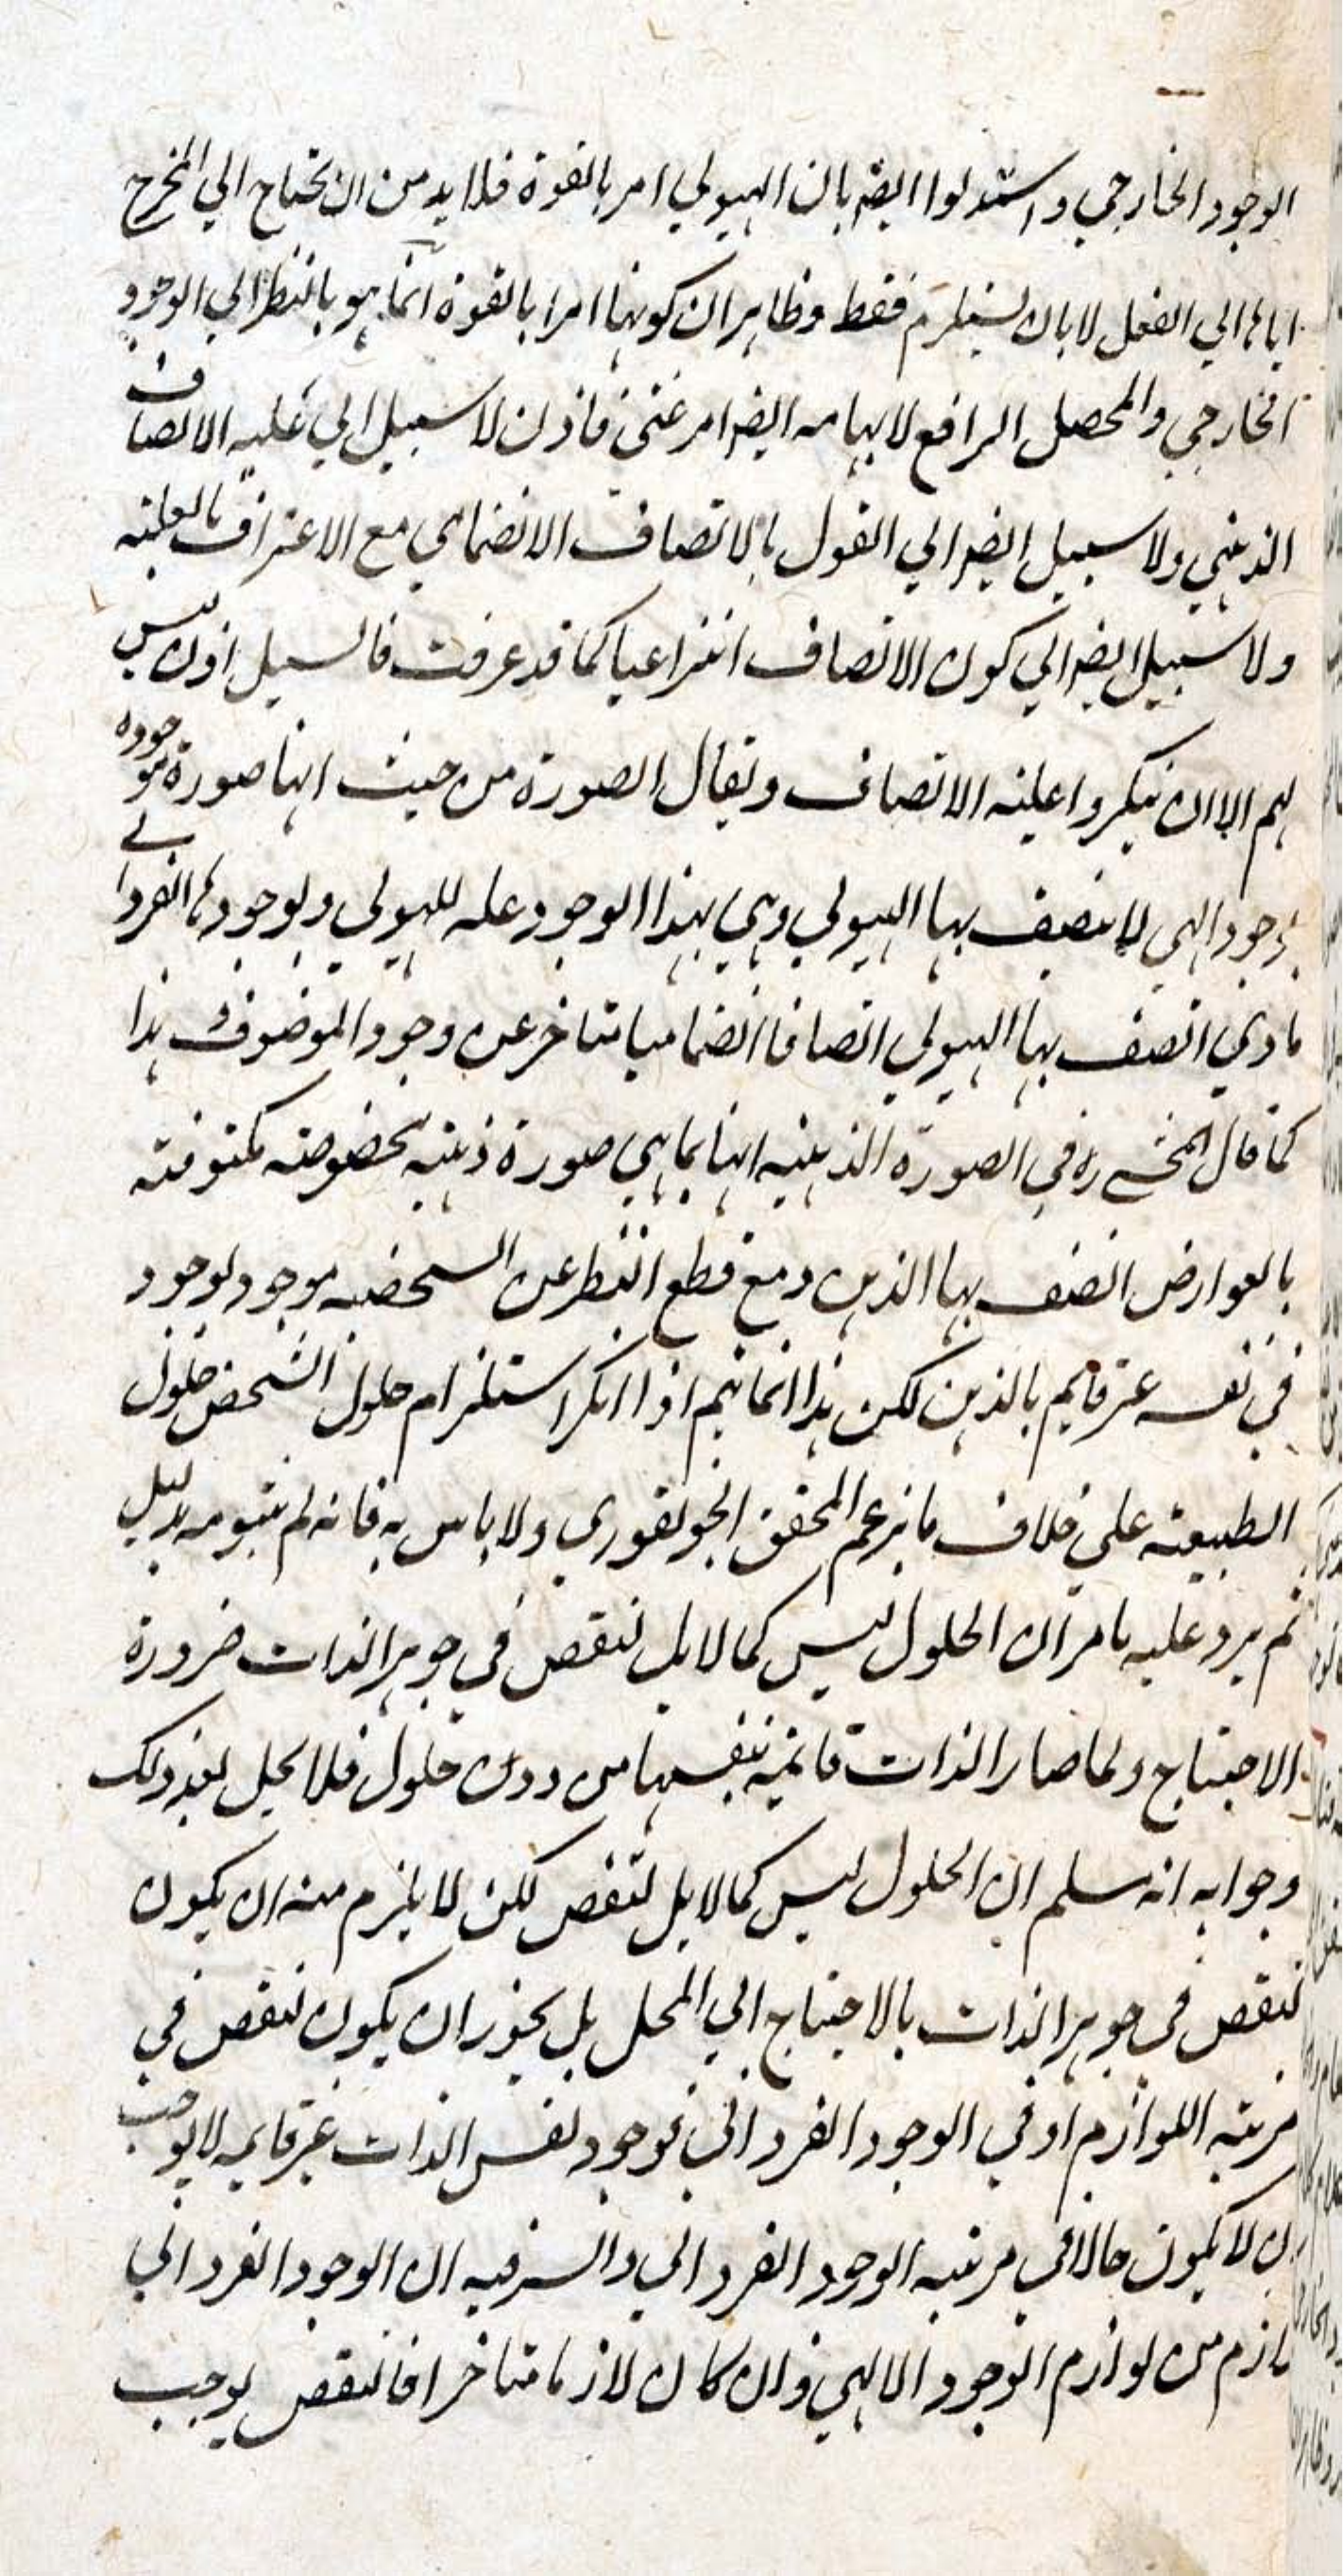 الوجود الخارجي واستدلوا ايضه بان الهيولي امر بالقوة فلا بد من ان تحتاج الي المخرج
اياها الي الفعل لا بان يستلزم فقط وظاهر ان كونها امرا بالقوة انما هو بالنظر الي الوجود
الخارجي والمحصل الرافع لابهامه ايضه امر عني فاذن لا سبيل الي علية الاتصاف
الذهني ولا سبيل ايضه الي القول بالاتصاف الانضمامي مع الاعتراف بالعلية
ولا سبيل ايضه الي كون الاتصاف انتزاعيا كما قد عرفت فالسبيل اذن ليس
لهم الا ان ينكروا علية الاتصاف ويقال الصورة من حيث انها صورة موجودة
بوجود الهي لا يتصف بها الهيولي وهي بهذا الوجود علة للهيولي وبوجودها الفرداني
مادي اتصف بها الهيولي اتصافا انضماميا متاخر عن وجود الموصوف هذا
كما قال المحشي ره في الصورة الذهنية انها بما هي صورة ذهنية بخصوصه مكتوفة
بالعوارض اتصف بها الذهن ومع قطع النظر عن التشخص موجود بوجود
في نفسه غير قايم بالذهن لكن هذا انما يتم اذا انكر استلزام حلول الشخص حلول
الطبيعة علي خلاف ما يزعم المحقق الجونفوري ولا باس به فانه لم يتبومه بدليل
ثم يرد عليه ما مر ان الحلول ليس كمالا بل لنقص في جوهر الذات ضرورة
الاحتياج ولما صار الذات قايمة بنفسها من دون حلول فلا يحل بعد ذلك
وجوابه انه سلم ان الحلول ليس كمالا بل لنقص لكن لا يلزم منه ان يكون
لنقص في جوهر الذات بالاحتياج الي المحل بل يجوز ان يكون لنقص في
مرتبة اللوازم او في الوجود الفرداني فوجود نفس الذات غير قايمة لا يوجب
ان لا يكون حالا في مرتبة الوجود الفرداني والسر فيه ان الوجود الفرداني
لازم من لوازم الوجود الالهي وان كان لازما متاخرا فالنقص يوجب